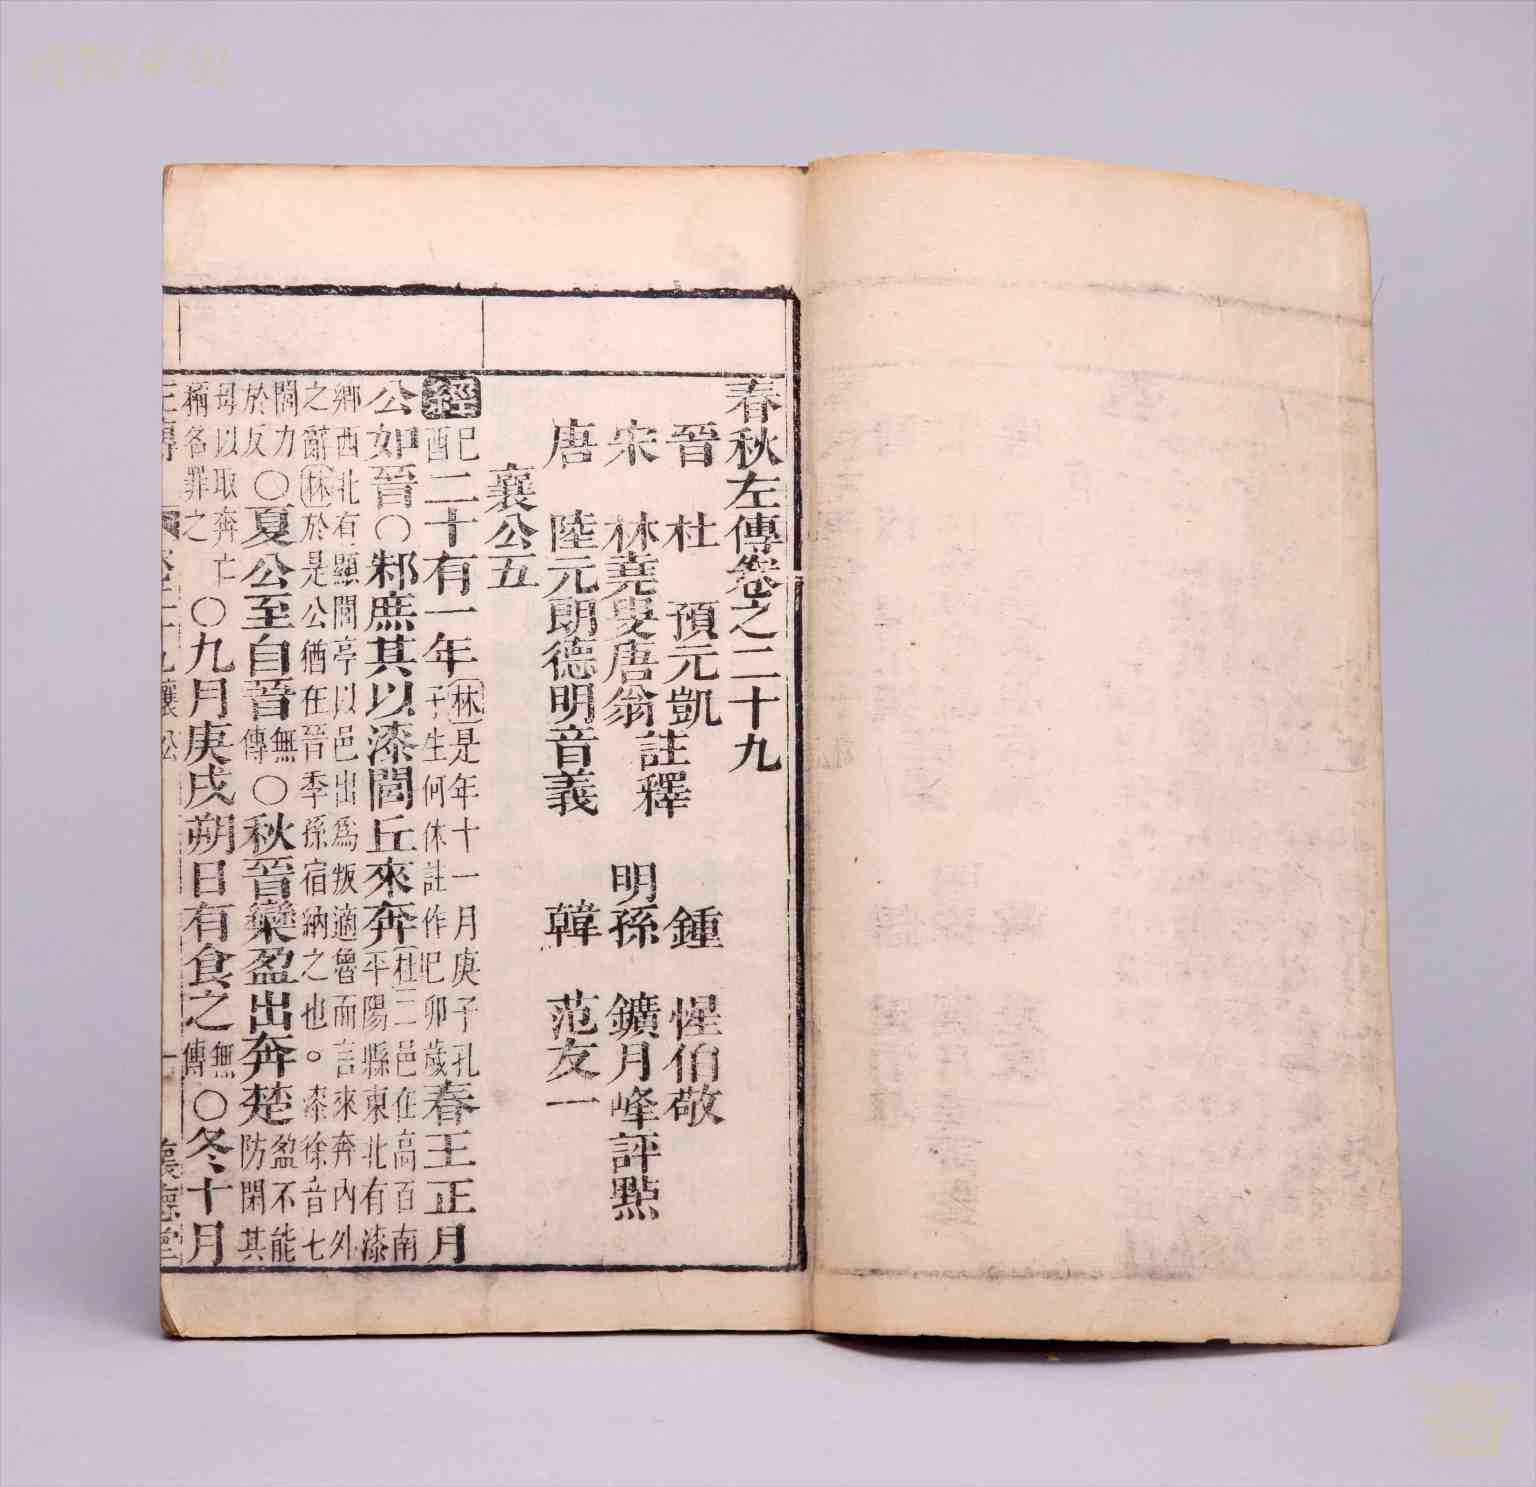 春秋左傳卷之二十九
晉　杜　預元凱　　　鍾　惺伯敬
宋　林堯叟唐翁註釋　明孫　鑛月峰評點
唐　陸元朗德明音義　韓　范友一
襄公五
經己酉二十有一年林是年十一月庚子孔子生何休註作己卯歲春王正月
公如晉○邾庶其以漆閭丘來奔杜二邑在高平陽縣東北有漆
鄉西北有顯閭亭以邑出爲叛適魯而言來奔內外
之辭林於是公猶在晉季孫宿納之也。漆徐音七
閭力於反○夏公至自晉無傳○秋晉欒盈出奔楚盈不能防閑其
母以取奔亡稱名罪之○九月庚戌朔日有食之無傳○冬十月
懷德堂